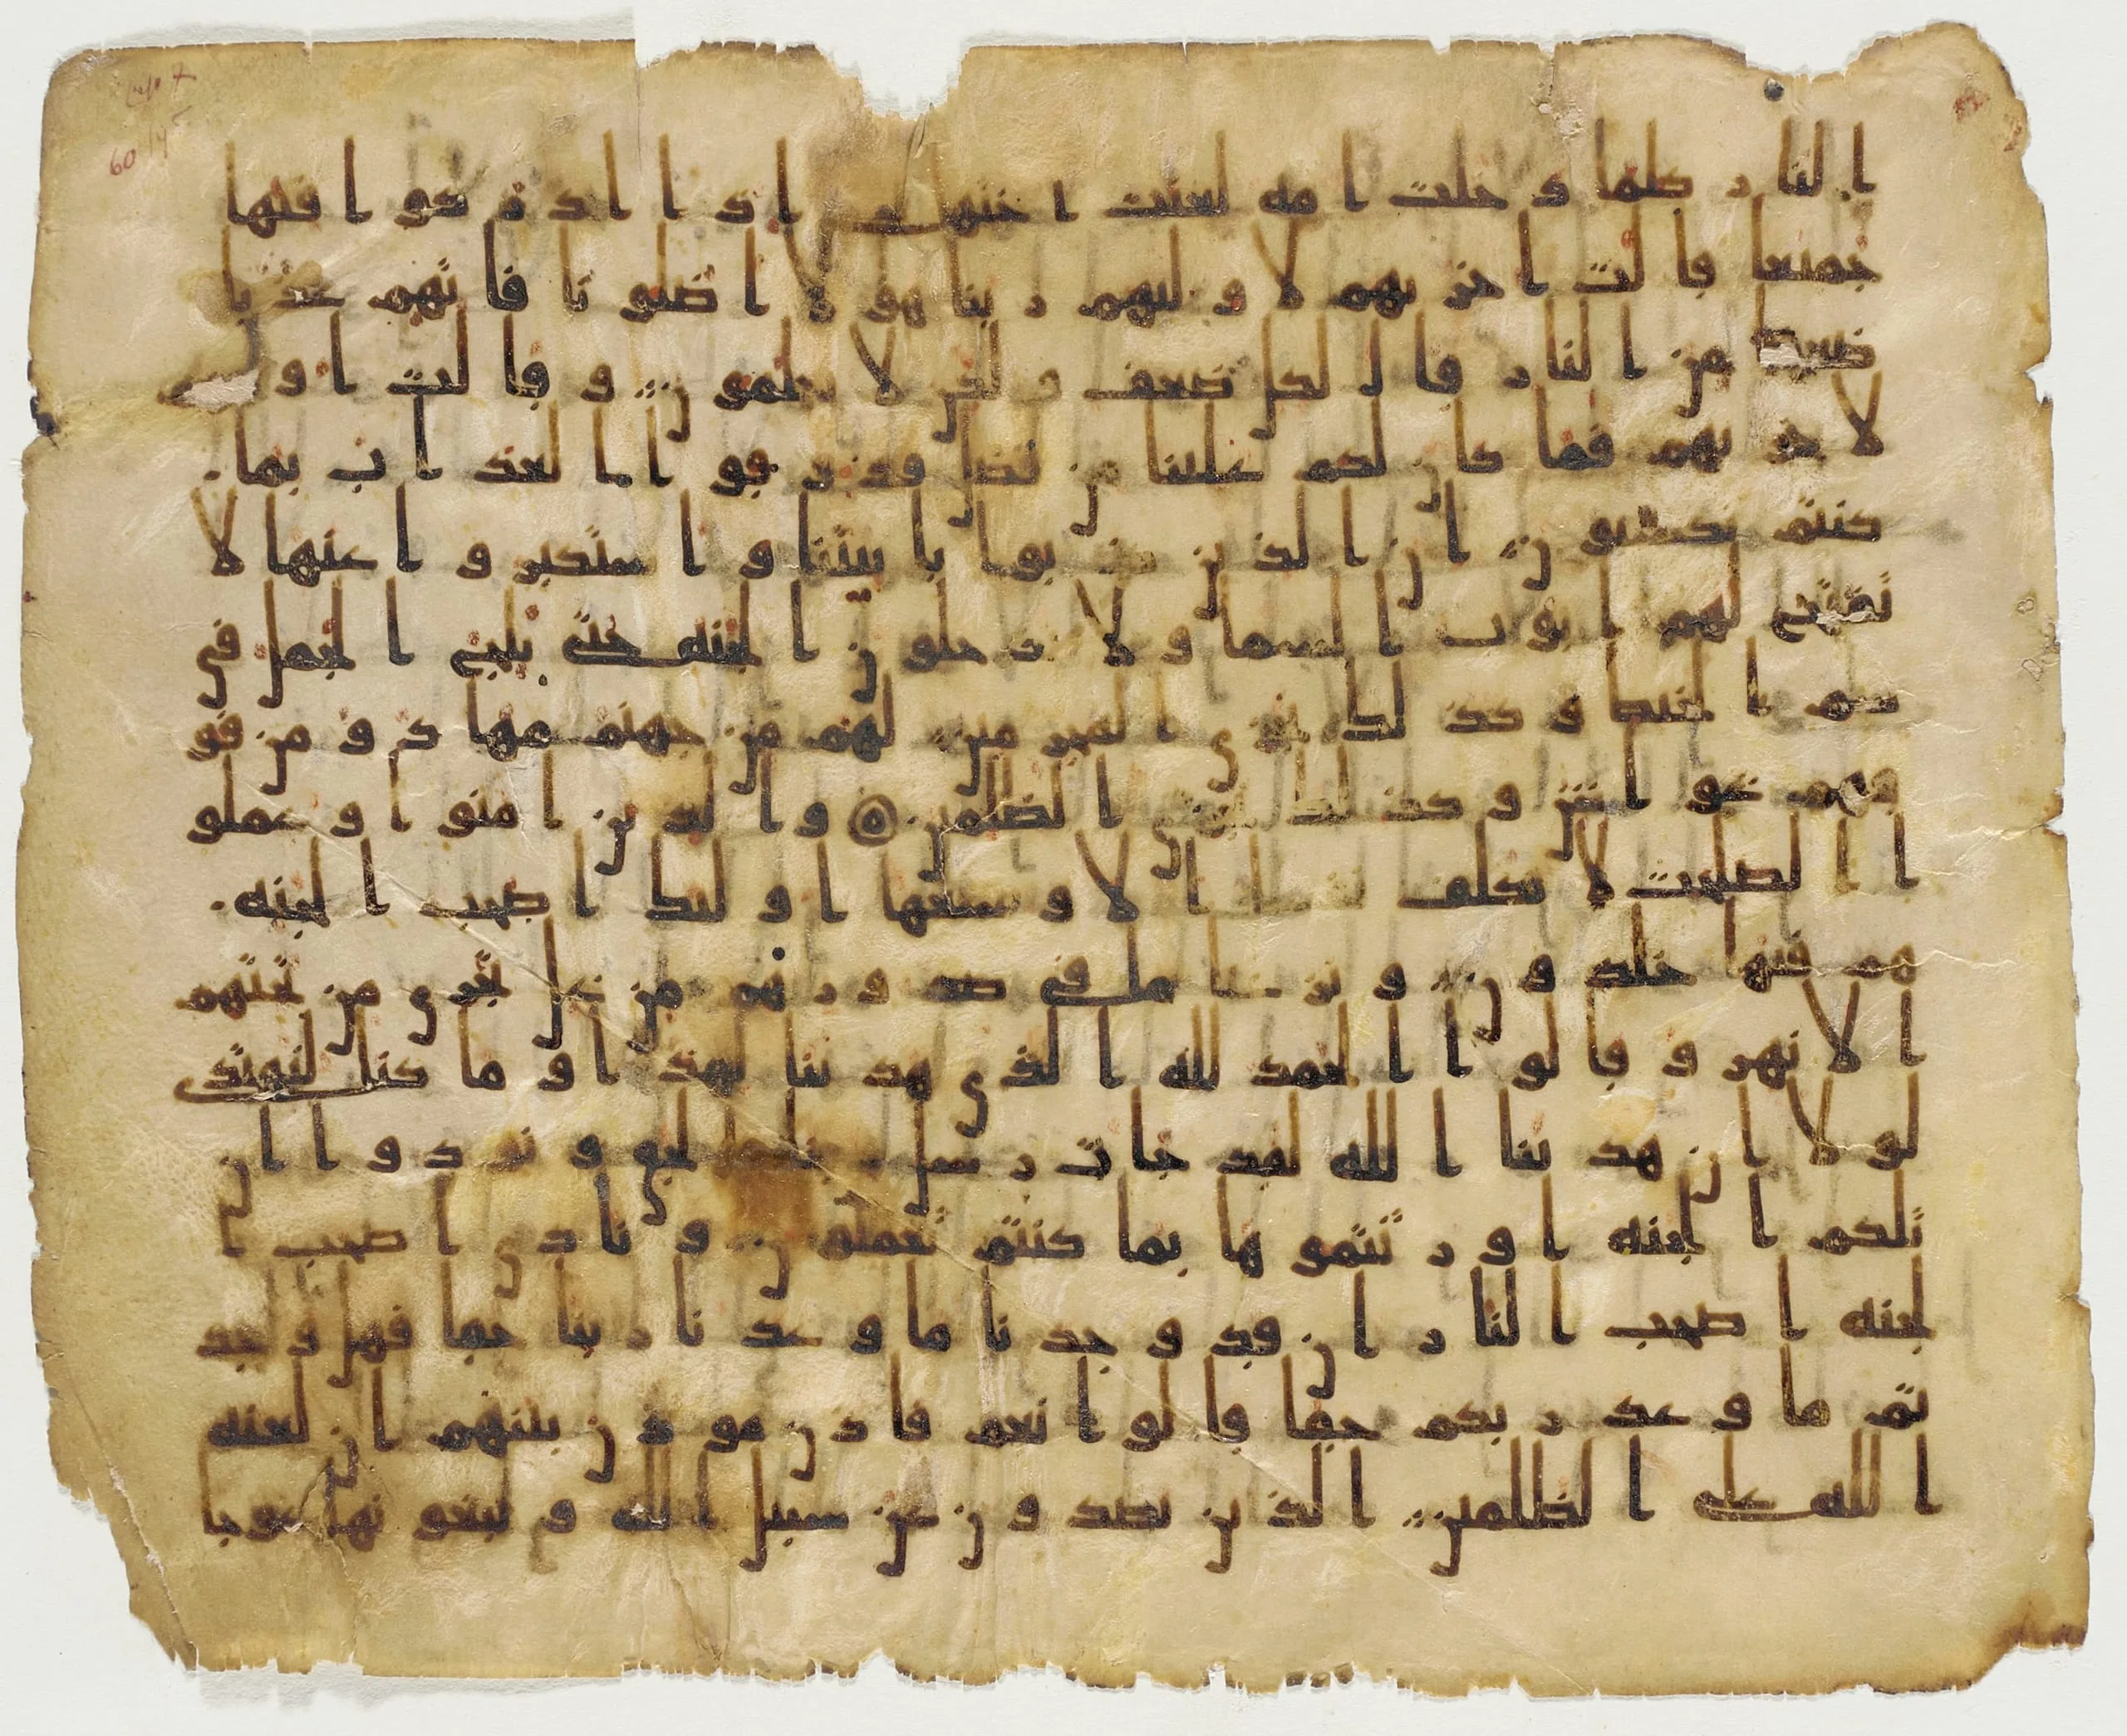 النار كلما دخلت امه لعنت اختها حتى اذا اداركوا فيها
جميعا قالت اخريهم لاوليهم ربنا هولا اضلونا فاتهم عذبا
ضعفا من النار قال لكل ضعف ولكن لا يعلمون وقالت او
لاخريهم فما كان لكم علينا من فضل فذوقوا العذاب بما
كنتم تكسبون ان الذين كذبوا باييتنا واستكبروا عنها لا
تفتح لهم ابوب السما ولا يدخلون الجنه حتى يلج الجمل في
سم الخيط وكذلك نجزي المجرمين لهم من جهنم مهاد ومن فو
قهم غواش وكذلك نجزي الظلمين والذين امنوا وعملو
ا الصلحت لا نكلف نفسا الا وسعها اوليك اصحب الجنه
هم فيها خلدون ونزعنا ما في صدورهم من غل تجري من تحتهم
الانهر وقالوا الحمد لله الذي هدينا لهذا وما كنا لنهتدي
لولا ان هدينا الله لقد جات رسل ربنا بالحق ونودوا ان
تلكم الجنه اورثتموها بما كنتم تعملون ونادي اصحب ا
لجنه اصحب النار ان قد وجدنا ما وعدنا ربنا حقا فهل وجد
تم ما وعد ربكم حقا قالوا نعم فاذن موذن بينهم ان لعنه
الله على الظلمين الذين يصدون عن سبيل الله ويبغونها عوجا